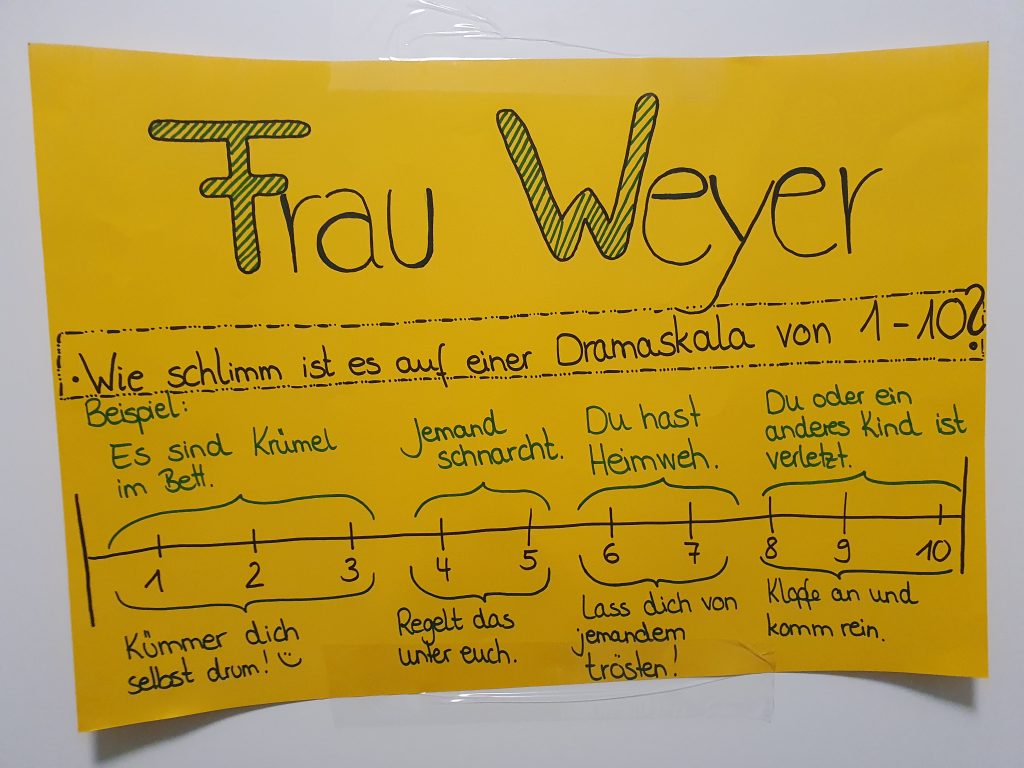 Frau Weyer
• Wie schlimm ist es auf einer Dramaskala von 1-10?
Beispiel:
Es sind Krümel
im Bett.
Jemand
schnarcht.
Du hast
Heimweh.
Du oder ein
anderes Kind ist
verletzt.
1 2 3 4 5 6 7 8 9 10
Kümmer dich
selbst drum! :)
Regelt das
unter euch.
Lass dich von
jemandem
trösten!
Klopfe an und
komm rein.